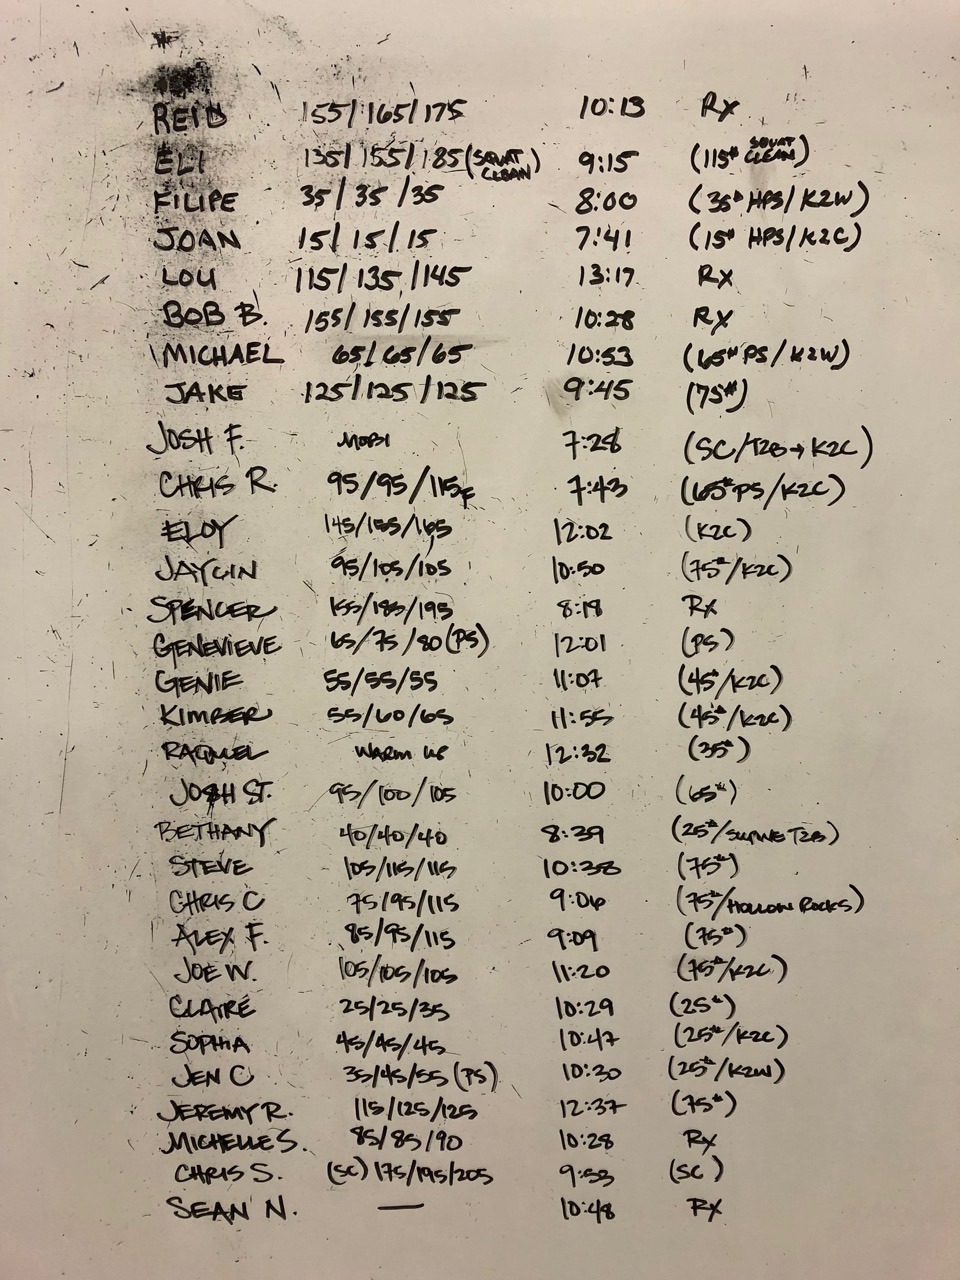 REID 155/165/175 10:13 Rx
ELI 135/155/185 (SQUAT CLEAN) 9:15 (115# SQUAT CLEAN)
FILIPE 35/35/35 8:00 (35# HPS/K2W)
JOAN 15/15/15 7:41 (15# HPS/K2C)
LOU 115/135/145 13:17 Rx
BOB B. 155/155/155 10:28 Rx
MICHAEL 65/65/65 10:53 (65# PS/K2W)
JAKE 125/125/125 9:45 (75#)
JOSH F. MOBI 7:28 (SC/T2B→K2C)
CHRIS R. 95/95/115F 7:43 (65# PS/K2C)
ELOY 145/155/165 12:02 (K2C)
JAYCIN 95/105/105 10:50 (75#/K2C)
SPENCER 155/185/195 8:18 Rx
GENEVIEVE 65/75/80 (PS) 12:01 (PS)
GENIE 55/55/55 11:07 (45#/K2C)
KIMBER 55/60/65 11:55 (45#/K2C)
RAQUEL WARM UP 12:32 (35#)
JOSH ST. 95/100/105 10:00 (65#)
BETHANY 40/40/40 8:39 (25#/SUPINE T2B)
STEVE 105/115/115 10:38 (75#)
CHRIS C 75/95/115 9:06 (75#/HOLLOW ROCKS)
ALEX F. 85/95/115 9:09 (75#)
JOE W. 105/105/105 11:20 (75#/K2C)
CLAIRE 25/25/35 10:29 (25#)
SOPHIA 45/45/45 10:47 (25#/K2C)
JEN C 35/45/55 (PS) 10:30 (25#/K2W)
JEREMY R. 115/125/125 12:37 (75#)
MICHELLE S. 85/85/90 10:28 Rx
CHRIS S. (SC) 175/195/205 9:53 (SC)
SEAN N. — 10:48 Rx